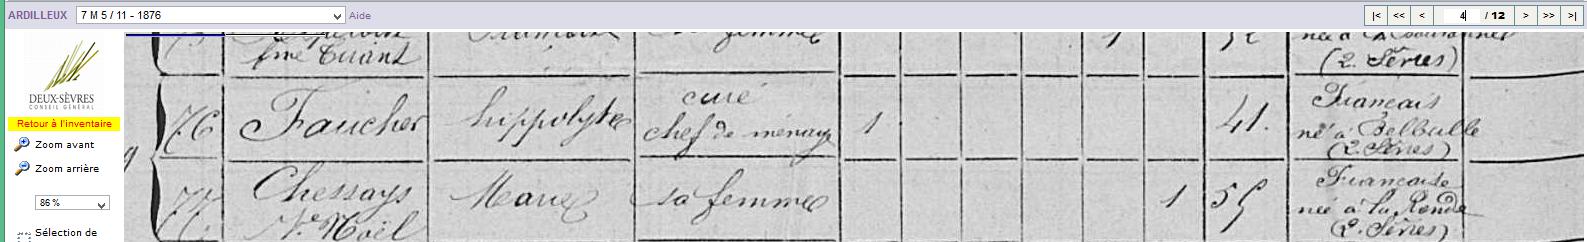 ARDILLEUX 7 M 5 / 11 - 1876 Aide |< << < 4 / 12 > >> >|
fme Tirant
(2. Sèvres)
DEUX-SÈVRES
CONSEIL GÉNÉRAL
Retour à l'inventaire
Zoom avant
Zoom arrière
86 %
Sélection de
76 Faucher hippolyte curé
chef de ménage 1 41. Français
né à Belleville
(2. Sèvres)
9
77 Chessays
Ve Noël Marie sa femme 1 55 Française
née à la Ronde
(2. Sèvres)